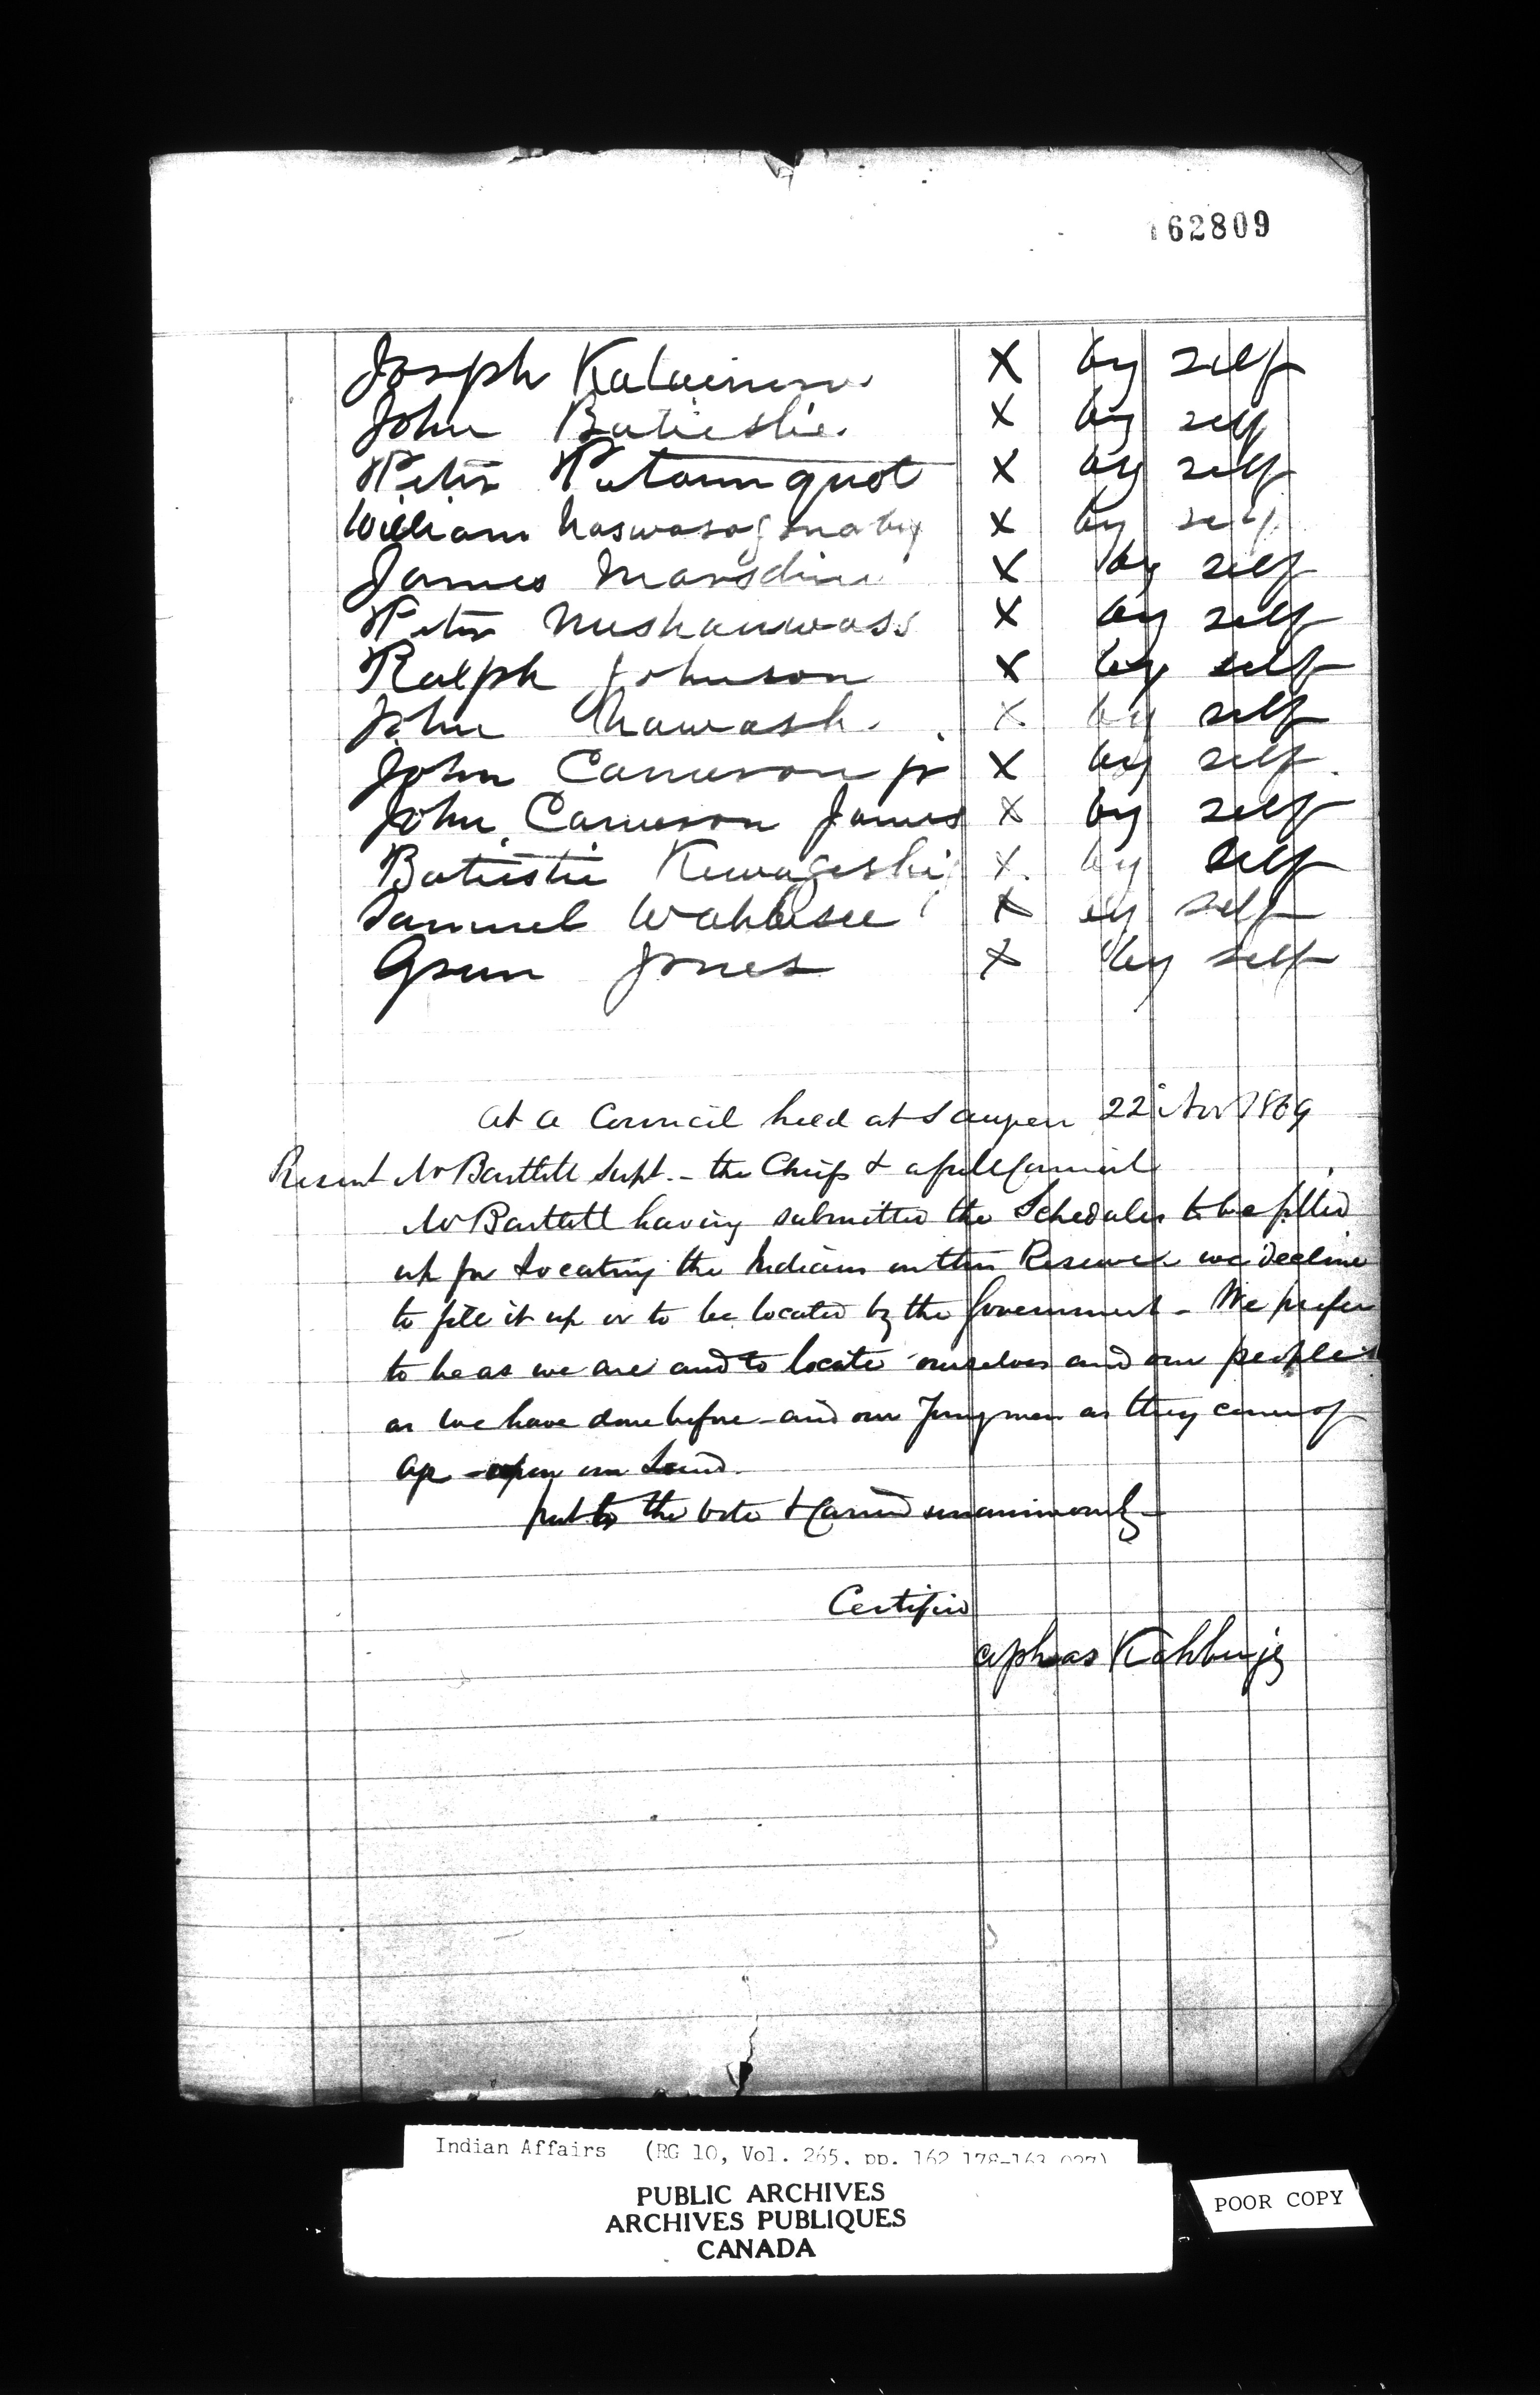 162809
Joseph X by self
John Batiestie. X by self
Peter Petaunquot X by self
William X by self
James Marsdine X by self
Peter Nushauwass X by self
Ralph Johnson X by self
John Nawash. X by self
John Cameron jr X by self.
John Cameron James X by self
Batiestie Kewageshig X. by self
Samuel Wahbesee X by self
Jones X by self
At a Council held at Saugeen 22 Nov 1869
Present Mr Bartlett Supt. - the Chiefs & a full Council
Mr Bartlett having submitted the Schedules to be filled
up for Locating the Indians on their Reserves we decline
to fill it up or to be located by the Government - We prefer
to be as we are and to locate ourselves and our peoples
as we have done before - and our Young men as they come of
age - upon our Land.
put to the vote & Carried unanimously -
Certified
Kahbeejy
Indian Affairs (RG 10, Vol. 265, pp. 162 178-163 027)
PUBLIC ARCHIVES
ARCHIVES PUBLIQUES
CANADA
POOR COPY